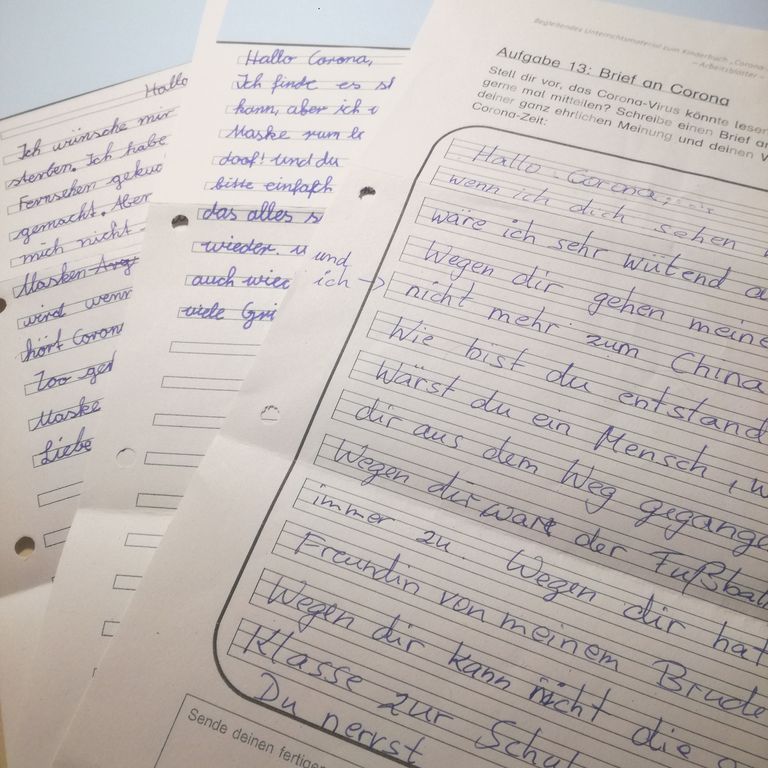 Hallo
Ich wünsche mir
sterben. Ich habe
Fernsehen
gemacht. Aber
mich nicht
Masken
wird wenn
hört Coron
Zoo
Maske
Liebe
Hallo Corona,
Ich finde es
kann, aber ich
Maske
doof! und du
bitte einfach
das alles
wieder.
auch
viele
Begleitendes Unterrichtsmaterial zum Kinderbuch „Corona
– Arbeitsblätter –
Aufgabe 13: Brief an Corona
Stell dir vor, das Corona-Virus könnte lesen
gerne mal mitteilen? Schreibe einen Brief an
deiner ganz ehrlichen Meinung und deinen W
Corona-Zeit:
Hallo Corona,
wenn ich dich sehen
wäre ich sehr wütend a
Wegen dir gehen meine
und
ich →
nicht mehr zum China
Wie bist du entstand
Wärst du ein Mensch, w
dir aus dem Weg gegange
Wegen dir war der Fußball
immer zu. Wegen dir hat
Freundin von meinem Brude
Wegen dir kann nicht die
Klasse zur Schul
Du nervst
Sende deinen fertigen